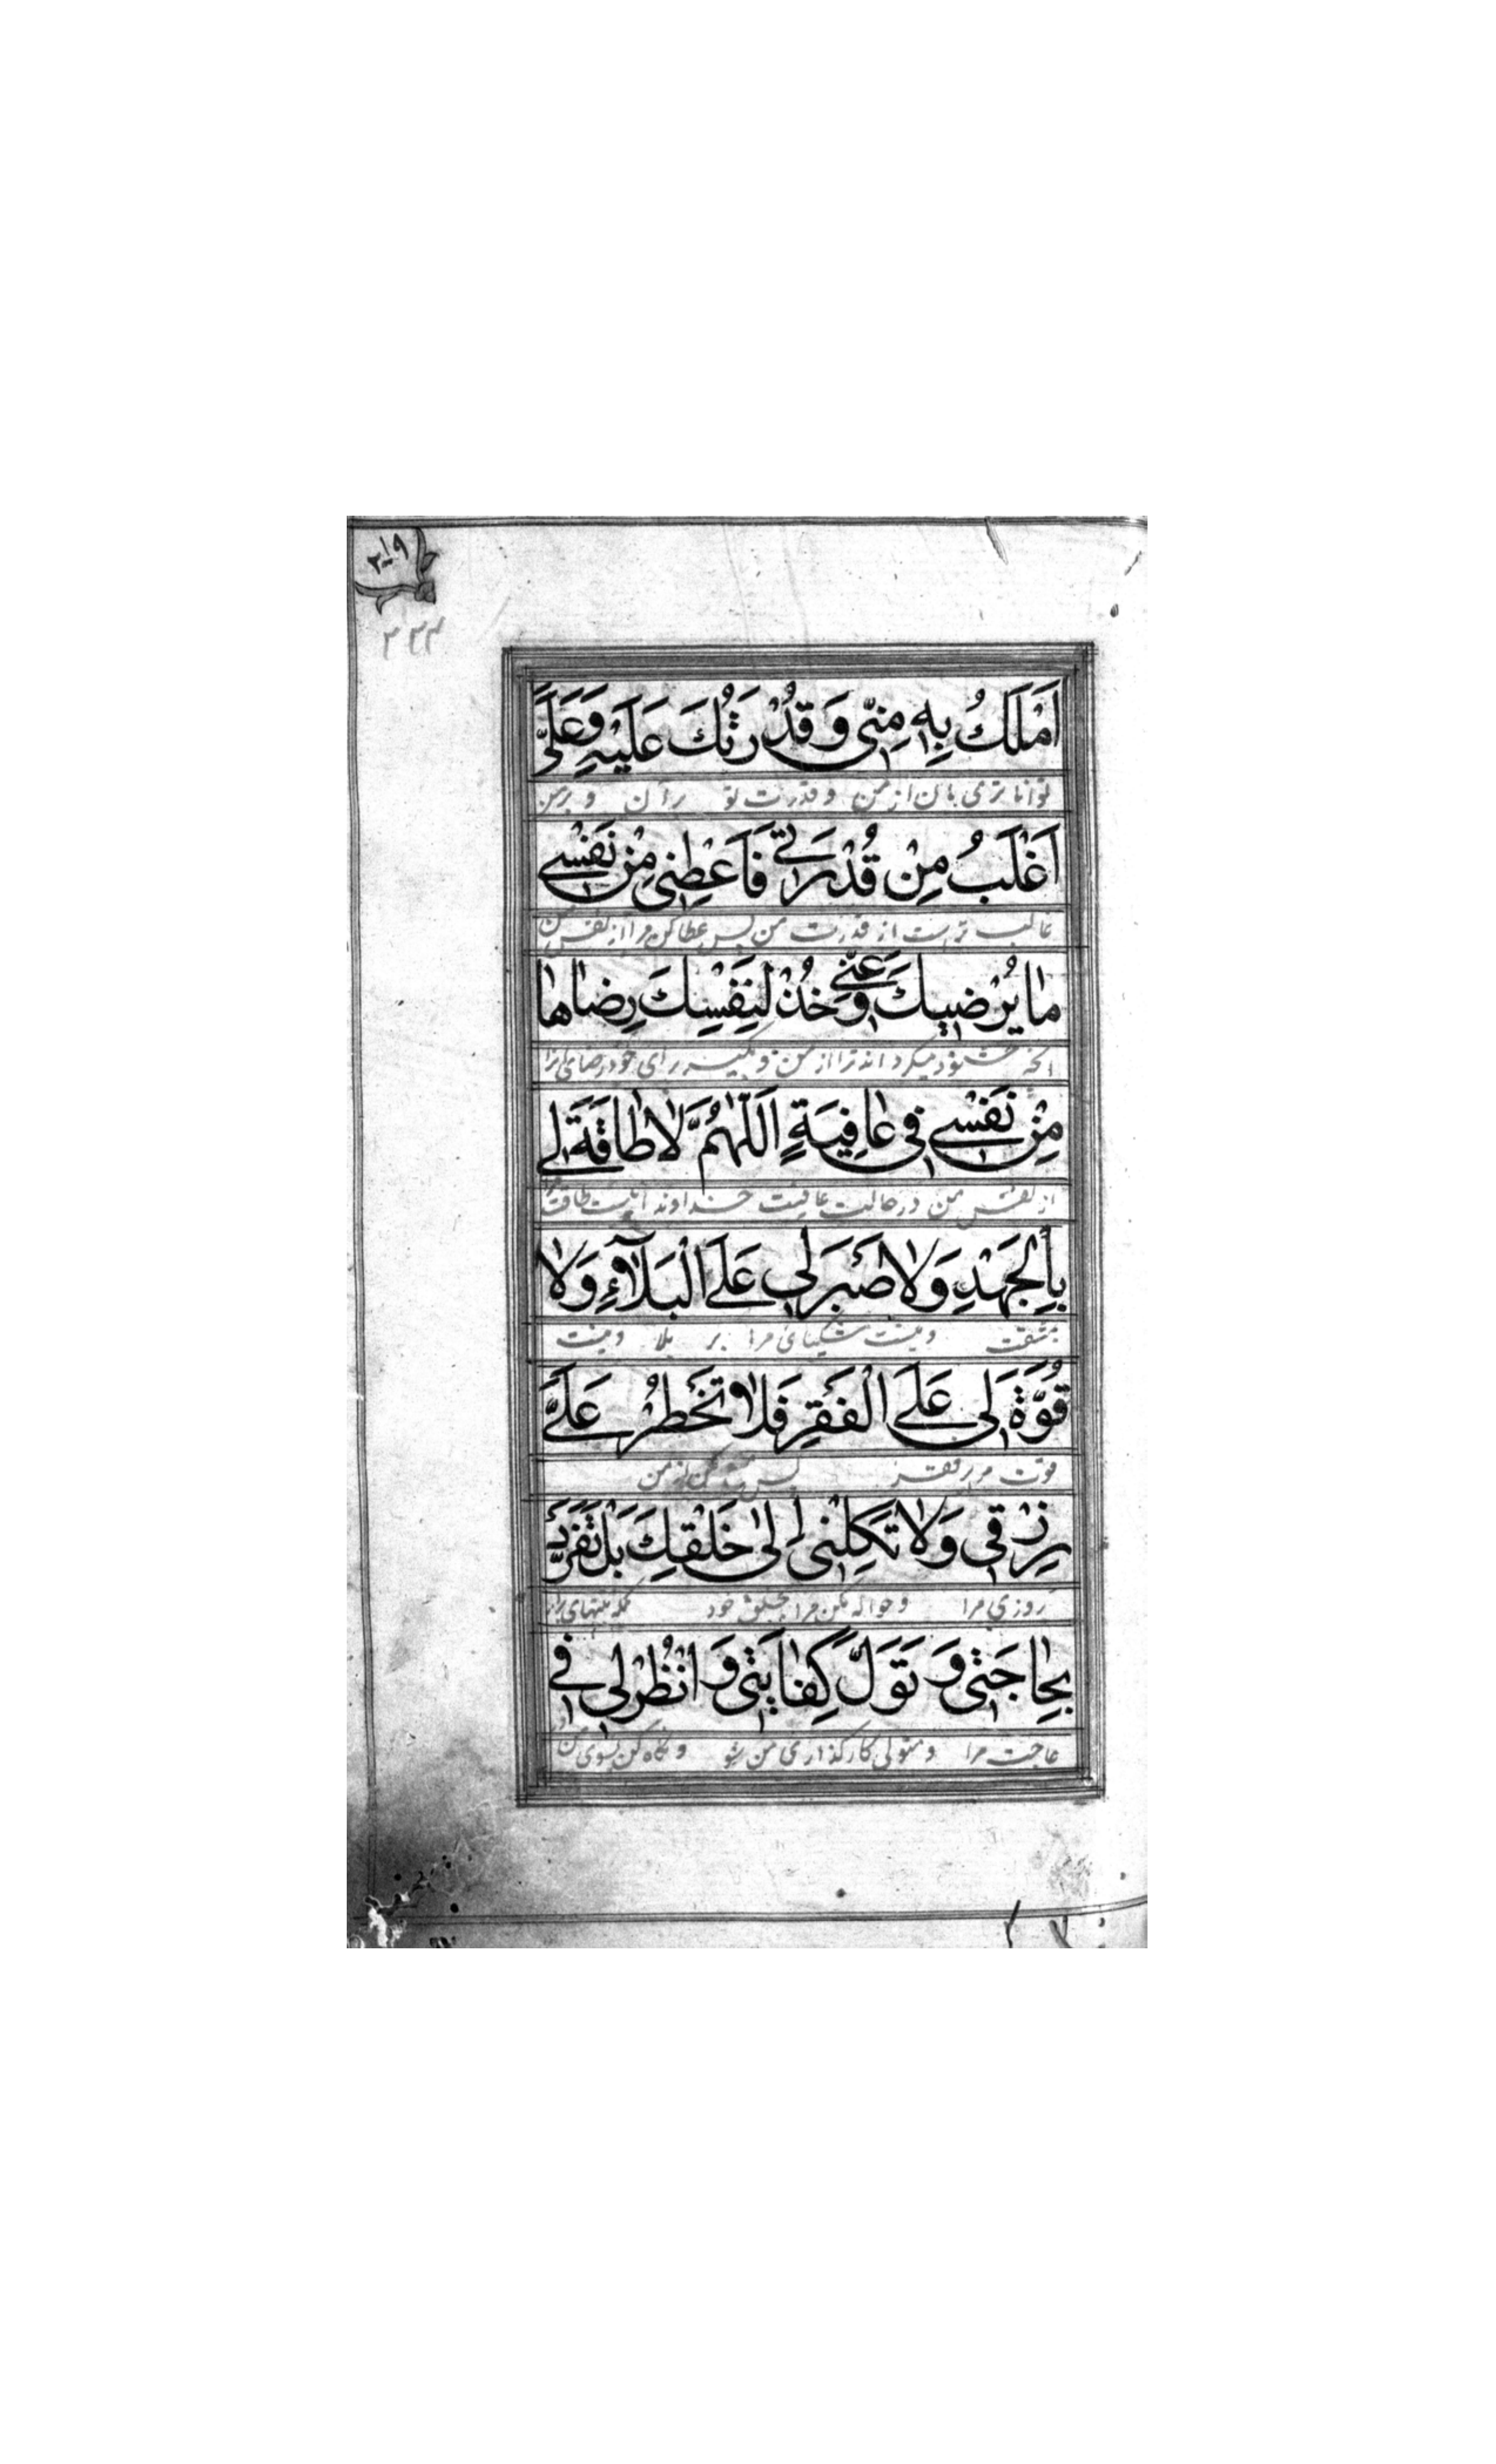 ٢١٩
٢٣٣
اَمْلَكُ بِهِ مِنّى وَ قُدْرَتُكَ عَلَيْهِ وَعَلَىَّ
توانا تری بان از من و قدرت تو بر آن و بر من
اَغْلَبُ مِنْ قُدْرَتى فَاَعْطِنى مِنْ نَفْسى
غالب تر است از قدرت من پس عطا کن مرا از نفس من
مٰا يُرْضيكَ عَنّى وَخُذْ لِنَفْسِكَ رِضٰاهٰا
انچه خشنود میکرداند ترا از من و بکیر برای خود رضای آنرا
مِنْ نَفْسى فى عٰافِيَةٍ اَللّٰهُمَّ لاٰ طٰاقَةَ لى
از نفس من در حالت عافیت خداوندا نیست طاقت مرا
بِالْجَهْدِ وَلاٰ صَبْرَ لى عَلَى الْبَلآءِ وَلاٰ
بمشقت و نیست شکیبائی مرا بر بلا و نیست
قُوَّةَ لى عَلَى الْفَقْرِ فَلاٰ تَحْظُرْ عَلَىَّ
قوت مرا بر فقر پس منع مکن از من
رِزْقى وَلاٰ تَكِلْنى اِلىٰ خَلْقِكَ بَلْ تَفَرَّدْ
روزی مرا و حواله مکن مرا بخلق خود بلکه بتنهای برار
بِحٰاجَتى وَ تَوَلَّ كِفٰايَتى وَ انْظُرْ لى فى
حاجت مرا و متولی کارکذاری من شو و نکاه کن بسوی من در